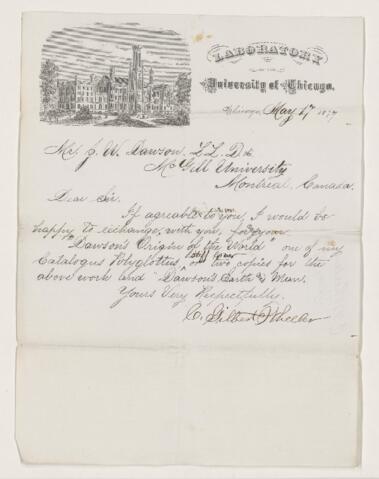 LABORATORY
OF THE
University of Chicago.
Chicago, May 17 1877
Mr. J. W. Dawson, L L. D &c.
McGill University
Montreal, Canada.
Dear Sir.
If agreable to you, I would be
happy to exchange with you, for your
"Dawson's Origin of the World" one of my
Catalogus Polyglottus, or two copies for the
above work and "Dawson's Earth & Man.
Yours Very Respectfully.
C. Gilbert Wheeler